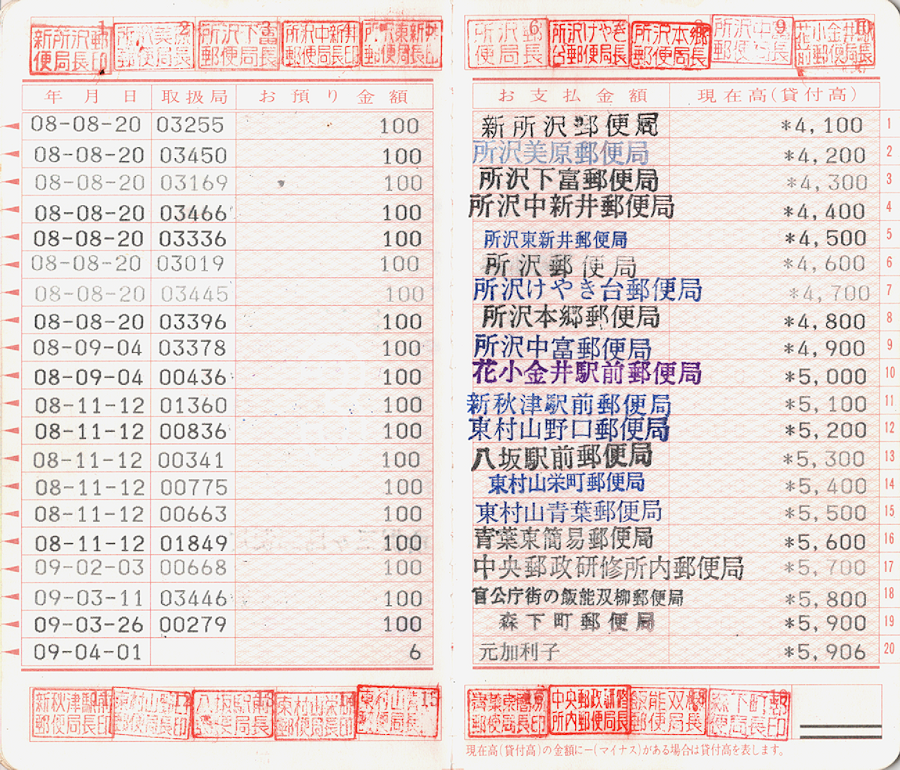 1 新所沢郵便局長印
2
3 所沢下富郵便局長
4 所沢中新井郵便局長印
5 所沢東新井郵便局長印
6 所沢郵便局長
所沢けやき台郵便局長
8 所沢本郷郵便局長
9 所沢中富郵便局長
10 花小金井駅前郵便局長
年月日 取扱局 お預り金額 お支払金額 現在高(貸付高)
08-08-20 03255 100 新所沢郵便局 *4,100 1
08-08-20 03450 100 所沢美原郵便局 *4,200 2
08-08-20 03169 100 所沢下富郵便局 *4,300 3
08-08-20 03466 100 所沢中新井郵便局 *4,400 4
08-08-20 03336 100 所沢東新井郵便局 *4,500 5
08-08-20 03019 100 所沢郵便局 *4,600 6
08-08-20 03445 100 所沢けやき台郵便局 *4,700 7
08-08-20 03396 100 所沢本郷郵便局 *4,800 8
08-09-04 03378 100 所沢中富郵便局 *4,900 9
08-09-04 00436 100 花小金井駅前郵便局 *5,000 10
08-11-12 01360 100 新秋津駅前郵便局 *5,100 11
08-11-12 00836 100 東村山野口郵便局 *5,200 12
08-11-12 00341 100 八坂駅前郵便局 *5,300 13
08-11-12 00775 100 東村山栄町郵便局 *5,400 14
08-11-12 00663 100 東村山青葉郵便局 *5,500 15
08-11-12 01849 100 青葉東簡易郵便局 *5,600 16
09-02-03 00668 100 中央郵政研修所内郵便局 *5,700 17
09-03-11 03446 100 官公庁街の飯能双柳郵便局 *5,800 18
09-03-26 00279 100 森下町郵便局 *5,900 19
09-04-01 6 元加利子 *5,906 20
新秋津駅前郵便局長印
東村山野口郵便局長印
八坂駅前郵便局長
東村山栄町郵便局長印
東村山青葉郵便局長印
青葉東簡易郵便局長印
中央郵政研修所内郵便局長
飯能双柳郵便局長
森下町郵便局長印
現在高(貸付高)の金額に－(マイナス)がある場合は貸付高を表します。